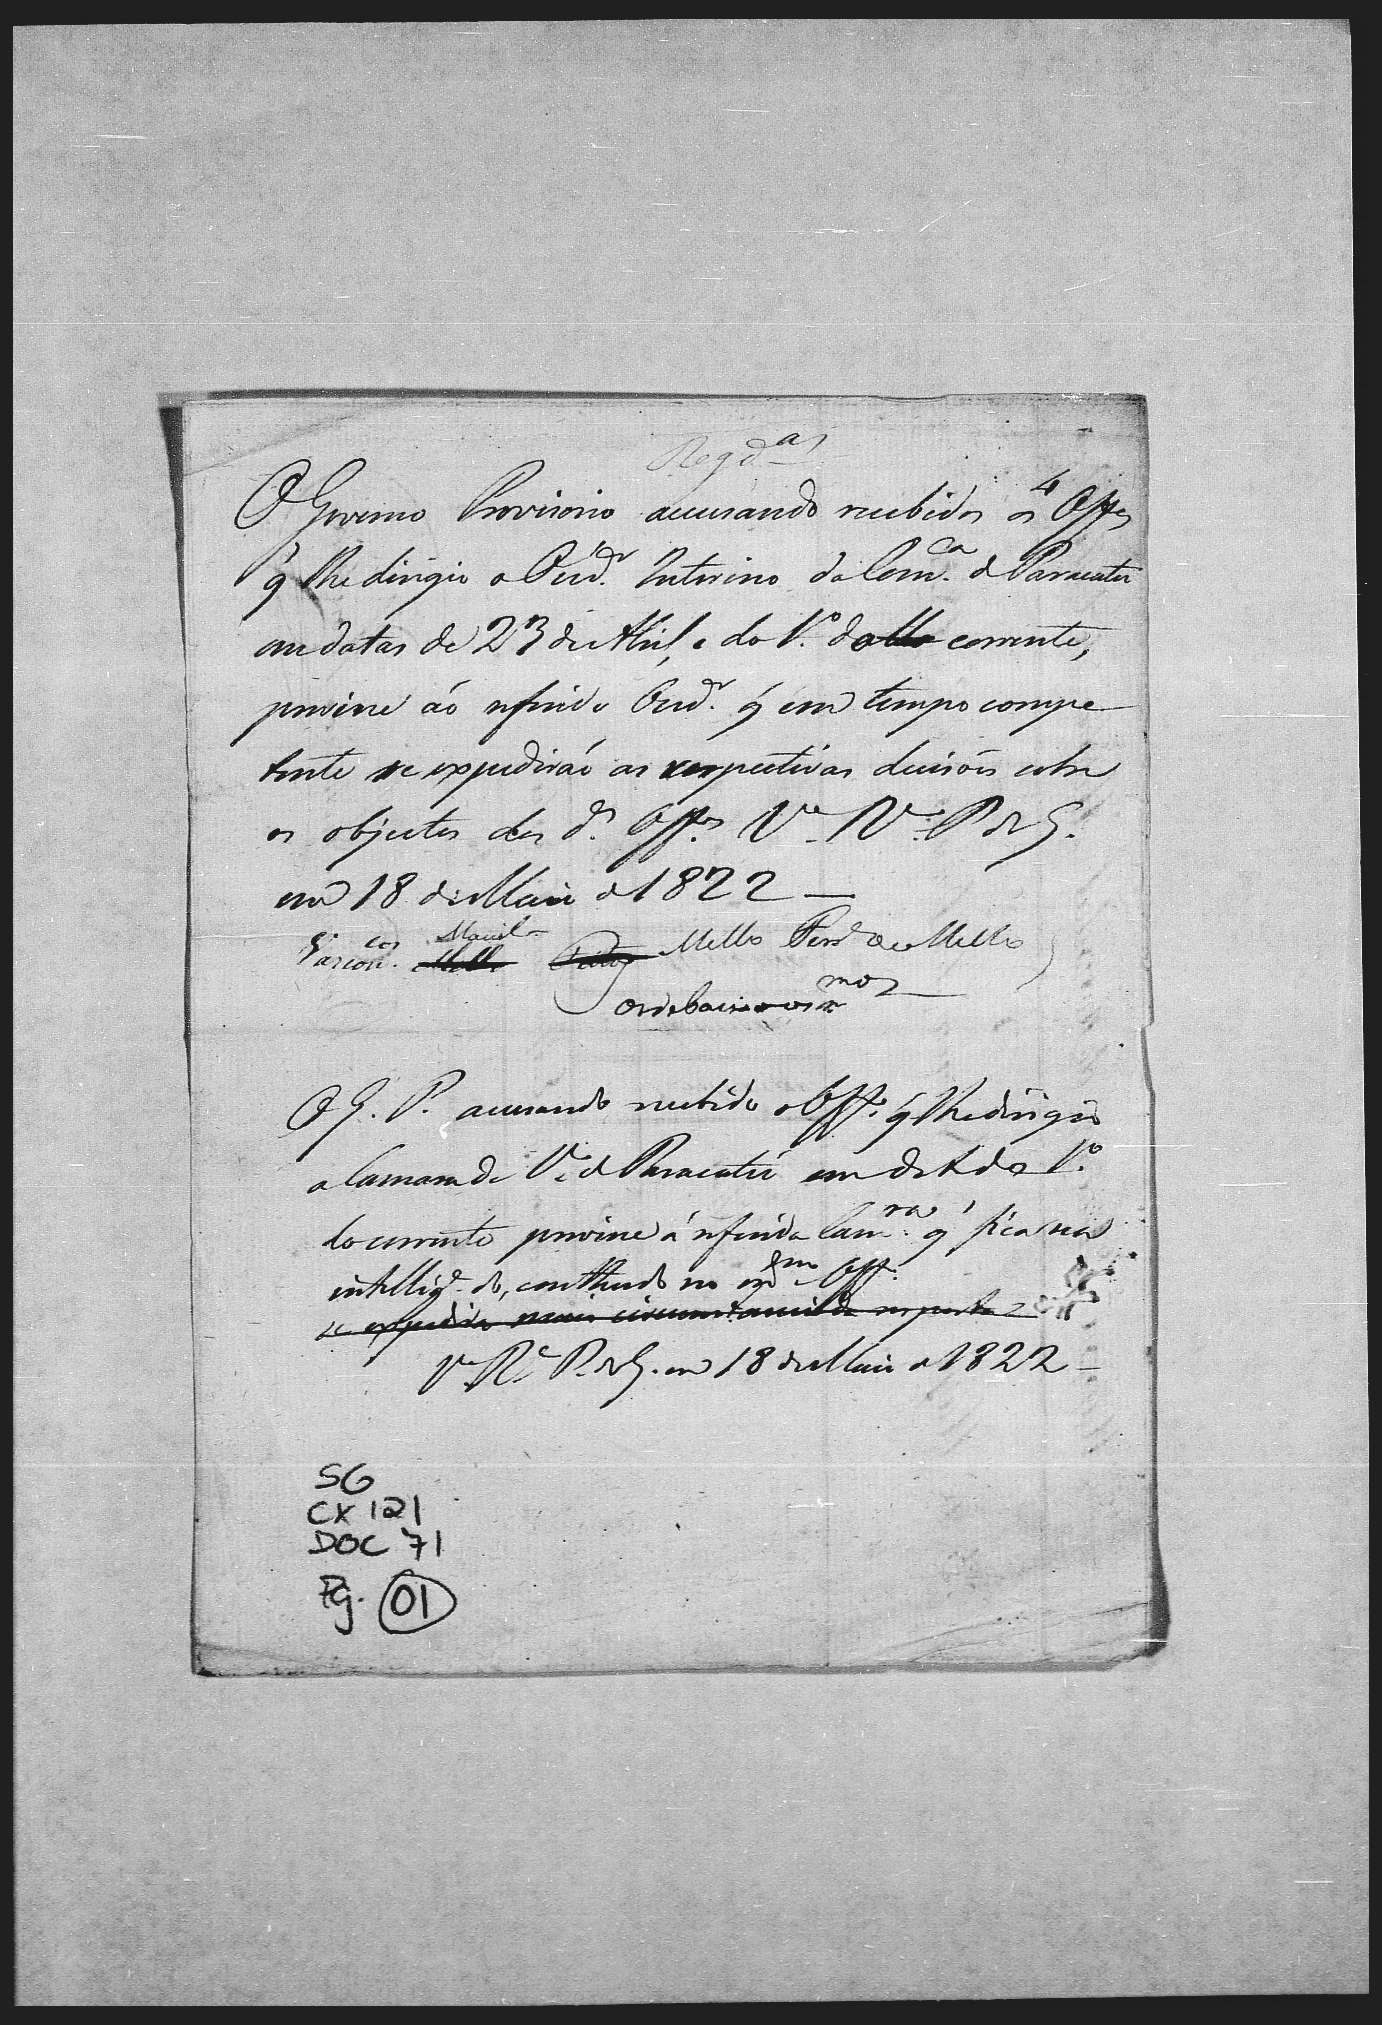 Regd.as
O Governo Provisorio accusando recebidos os 4 Offes
q̃ lhe dirigio o Ouvd.r Interino da Com.ca d Paracatu
em datas de 23 de Abril, e do 1.o do corrente,
previne áo referido Ouvd.r q̃ em tempo compe
tente se expedirão as respectivas decisões sobre
os objectos dos d.s Offes V.a R.a P. de G.
em 18 de Maio d 1822 —
Maciel Mello
O G. P. accusando recebido o Off.o q̃ lhe dirigio
a Camara da V.a d Paracatú em data do 1.o
do corrente previne á referida Cam.ra q̃ fica na
intellig.a do, contheudo no md.mo Off.o
se expedirá mais circumstanciada resposta
V.a R.a P. de G. em 18 de Maio d 1822 —
SG
CX 121
DOC 71
Pg. 01